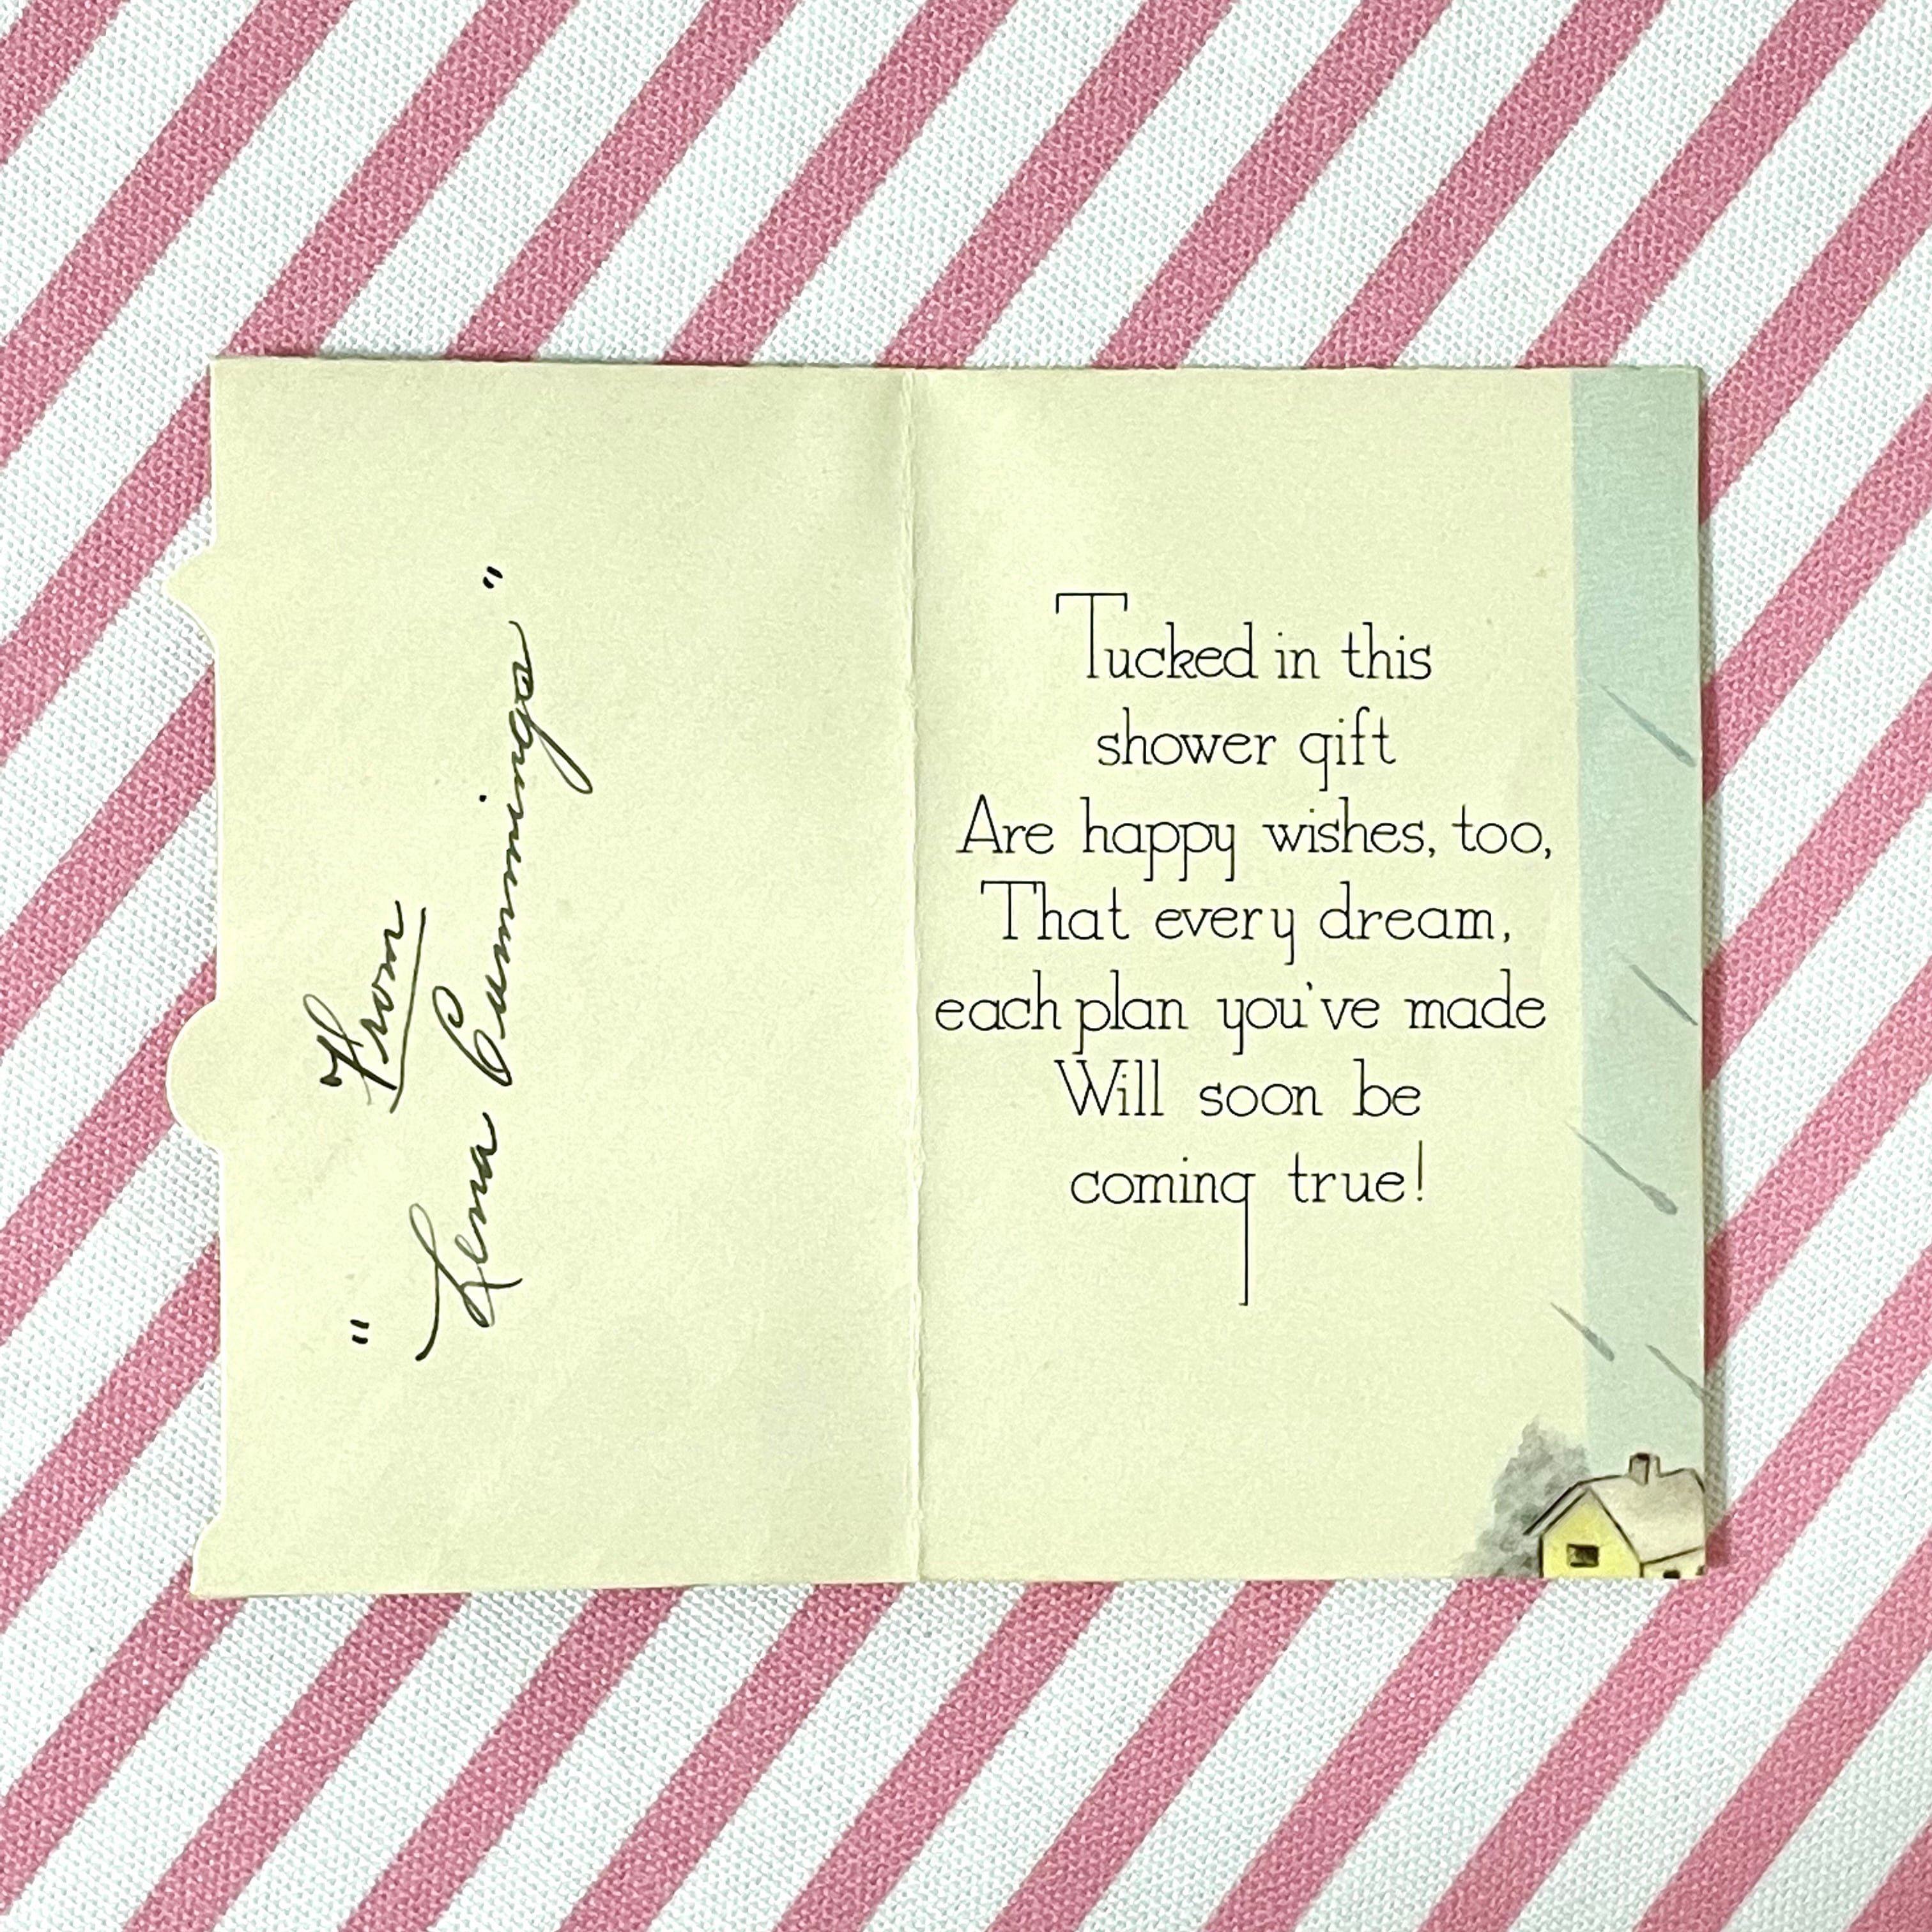 From
"Lena Cummings"
Tucked in this
shower gift
Are happy wishes, too,
That every dream,
each plan you've made
Will soon be
coming true!